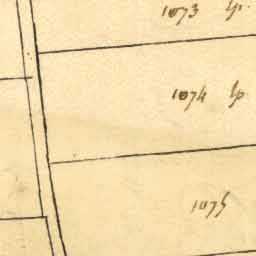 1073 lp.
1074 lp
1075